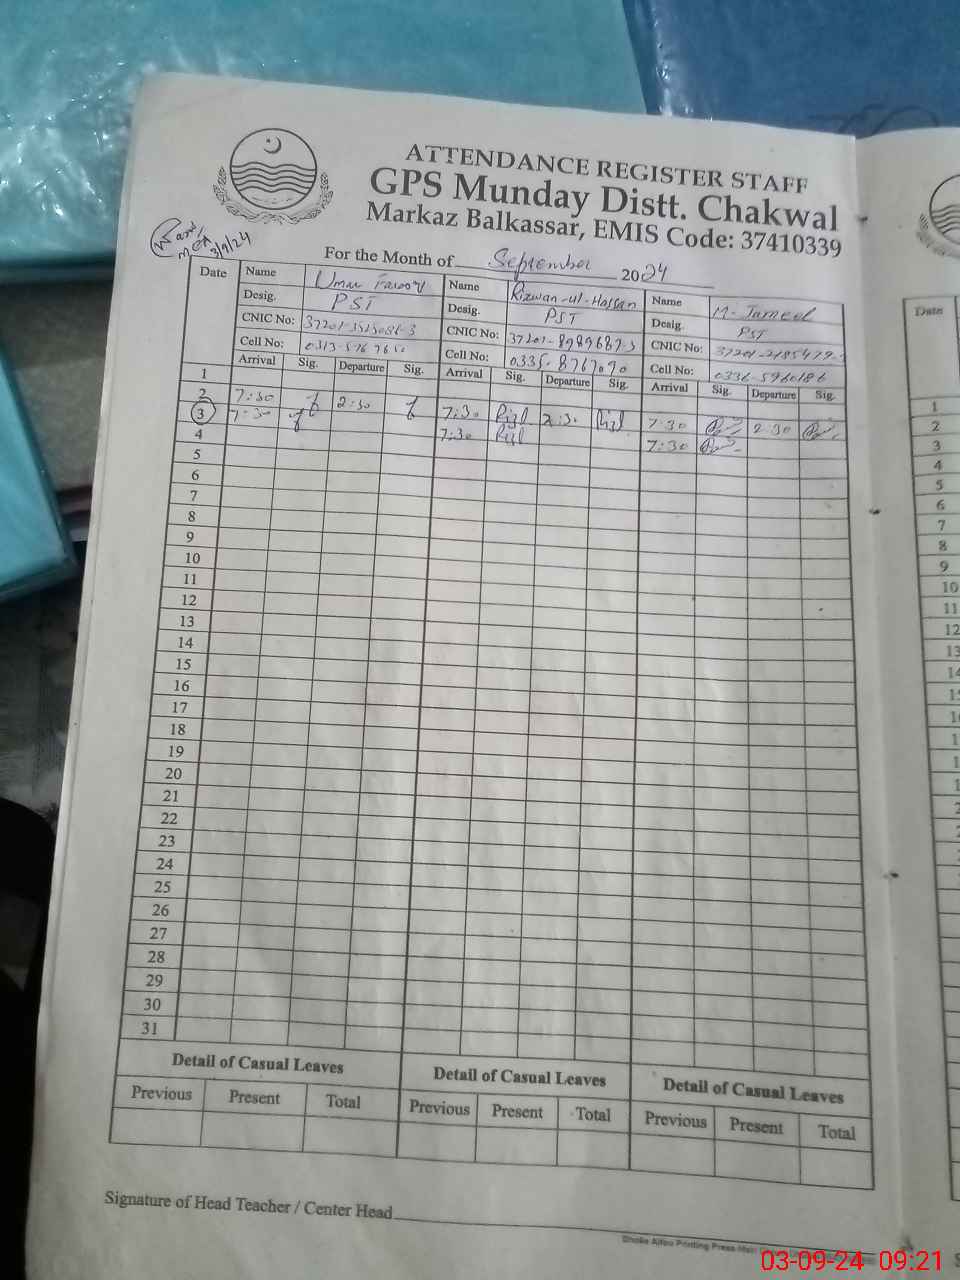 ATTENDANCE REGISTER STAFF
GPS Munday Distt. Chakwal
Markaz Balkassar, EMIS Code: 37410339
MEA
3/9/24
For the Month of September 2024
Date Name Umar Farooq Name Rizwan-ul-Hassan Name M. Jameel
Desig. PST Desig. PST Desig. PST
CNIC No: CNIC No: CNIC No:
Cell No: Cell No: 0335-8767090 Cell No: 0336-5960186
Arrival Sig. Departure Sig. Arrival Sig. Departure Sig. Arrival Sig. Departure Sig.
1
2 7:30 2:30 7:30 2:30 7:30 2:30
3 7:30 7:30 7:30
4
5
6
7
8
9
10
11
12
13
14
15
16
17
18
19
20
21
22
23
24
25
26
27
28
29
30
31
Detail of Casual Leaves Detail of Casual Leaves Detail of Casual Leaves
Previous Present Total Previous Present Total Previous Present Total
Signature of Head Teacher / Center Head
Printing Press
03-09-24 09:21
Date
1
2
3
4
5
6
7
8
9
10
11
12
13